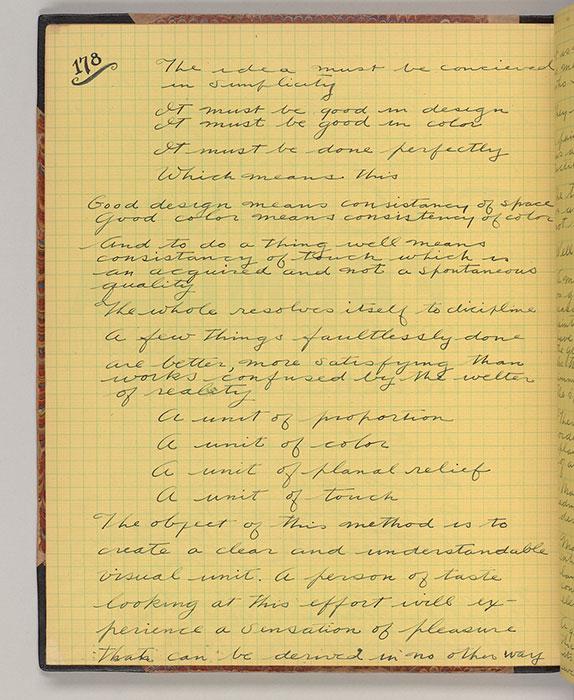 178
The idea must be concieved
in simplicity
It must be good in design
It must be good in color
It must be done perfectly
Which means this
Good design means consistancy of space
Good color means consistency of color
And to do a thing well means
consistancy of touch which is
an acquired and not a spontaneous
quality
The whole resolves itself to dicipline
A few things faultlessly done
are better, more satisfying than
works confused by the welter
of reality
A unit of proportion
A unit of color
A unit of planal relief
A unit of touch
The object of this method is to
create a clear and understandable
visual unit. A person of taste
looking at this effort will ex-
perience a sensation of pleasure
that can be derived in no other way